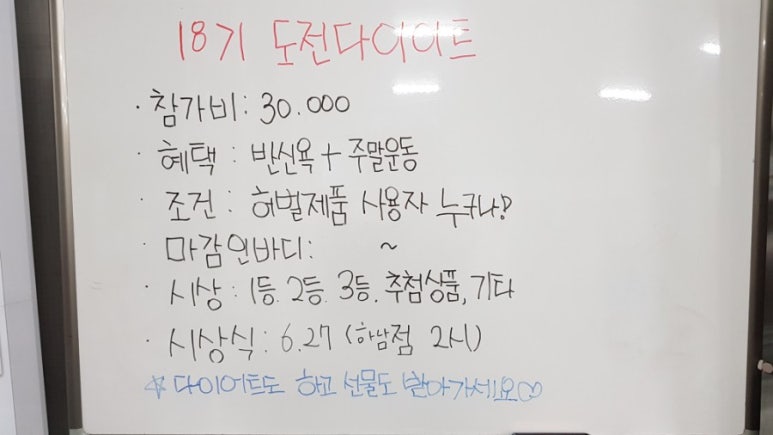 18기 도전다이어트
· 참가비: 30.000
· 혜택 : 반신욕 + 주말운동
· 조건 : 허벌제품 사용자 누구나!
· 마감인바디: ~
· 시상 : 1등. 2등. 3등. 추첨상품, 기타
· 시상식 : 6.27 (하남점 2시)
☆ 다이어트도 하고 선물도 받아가세요♡